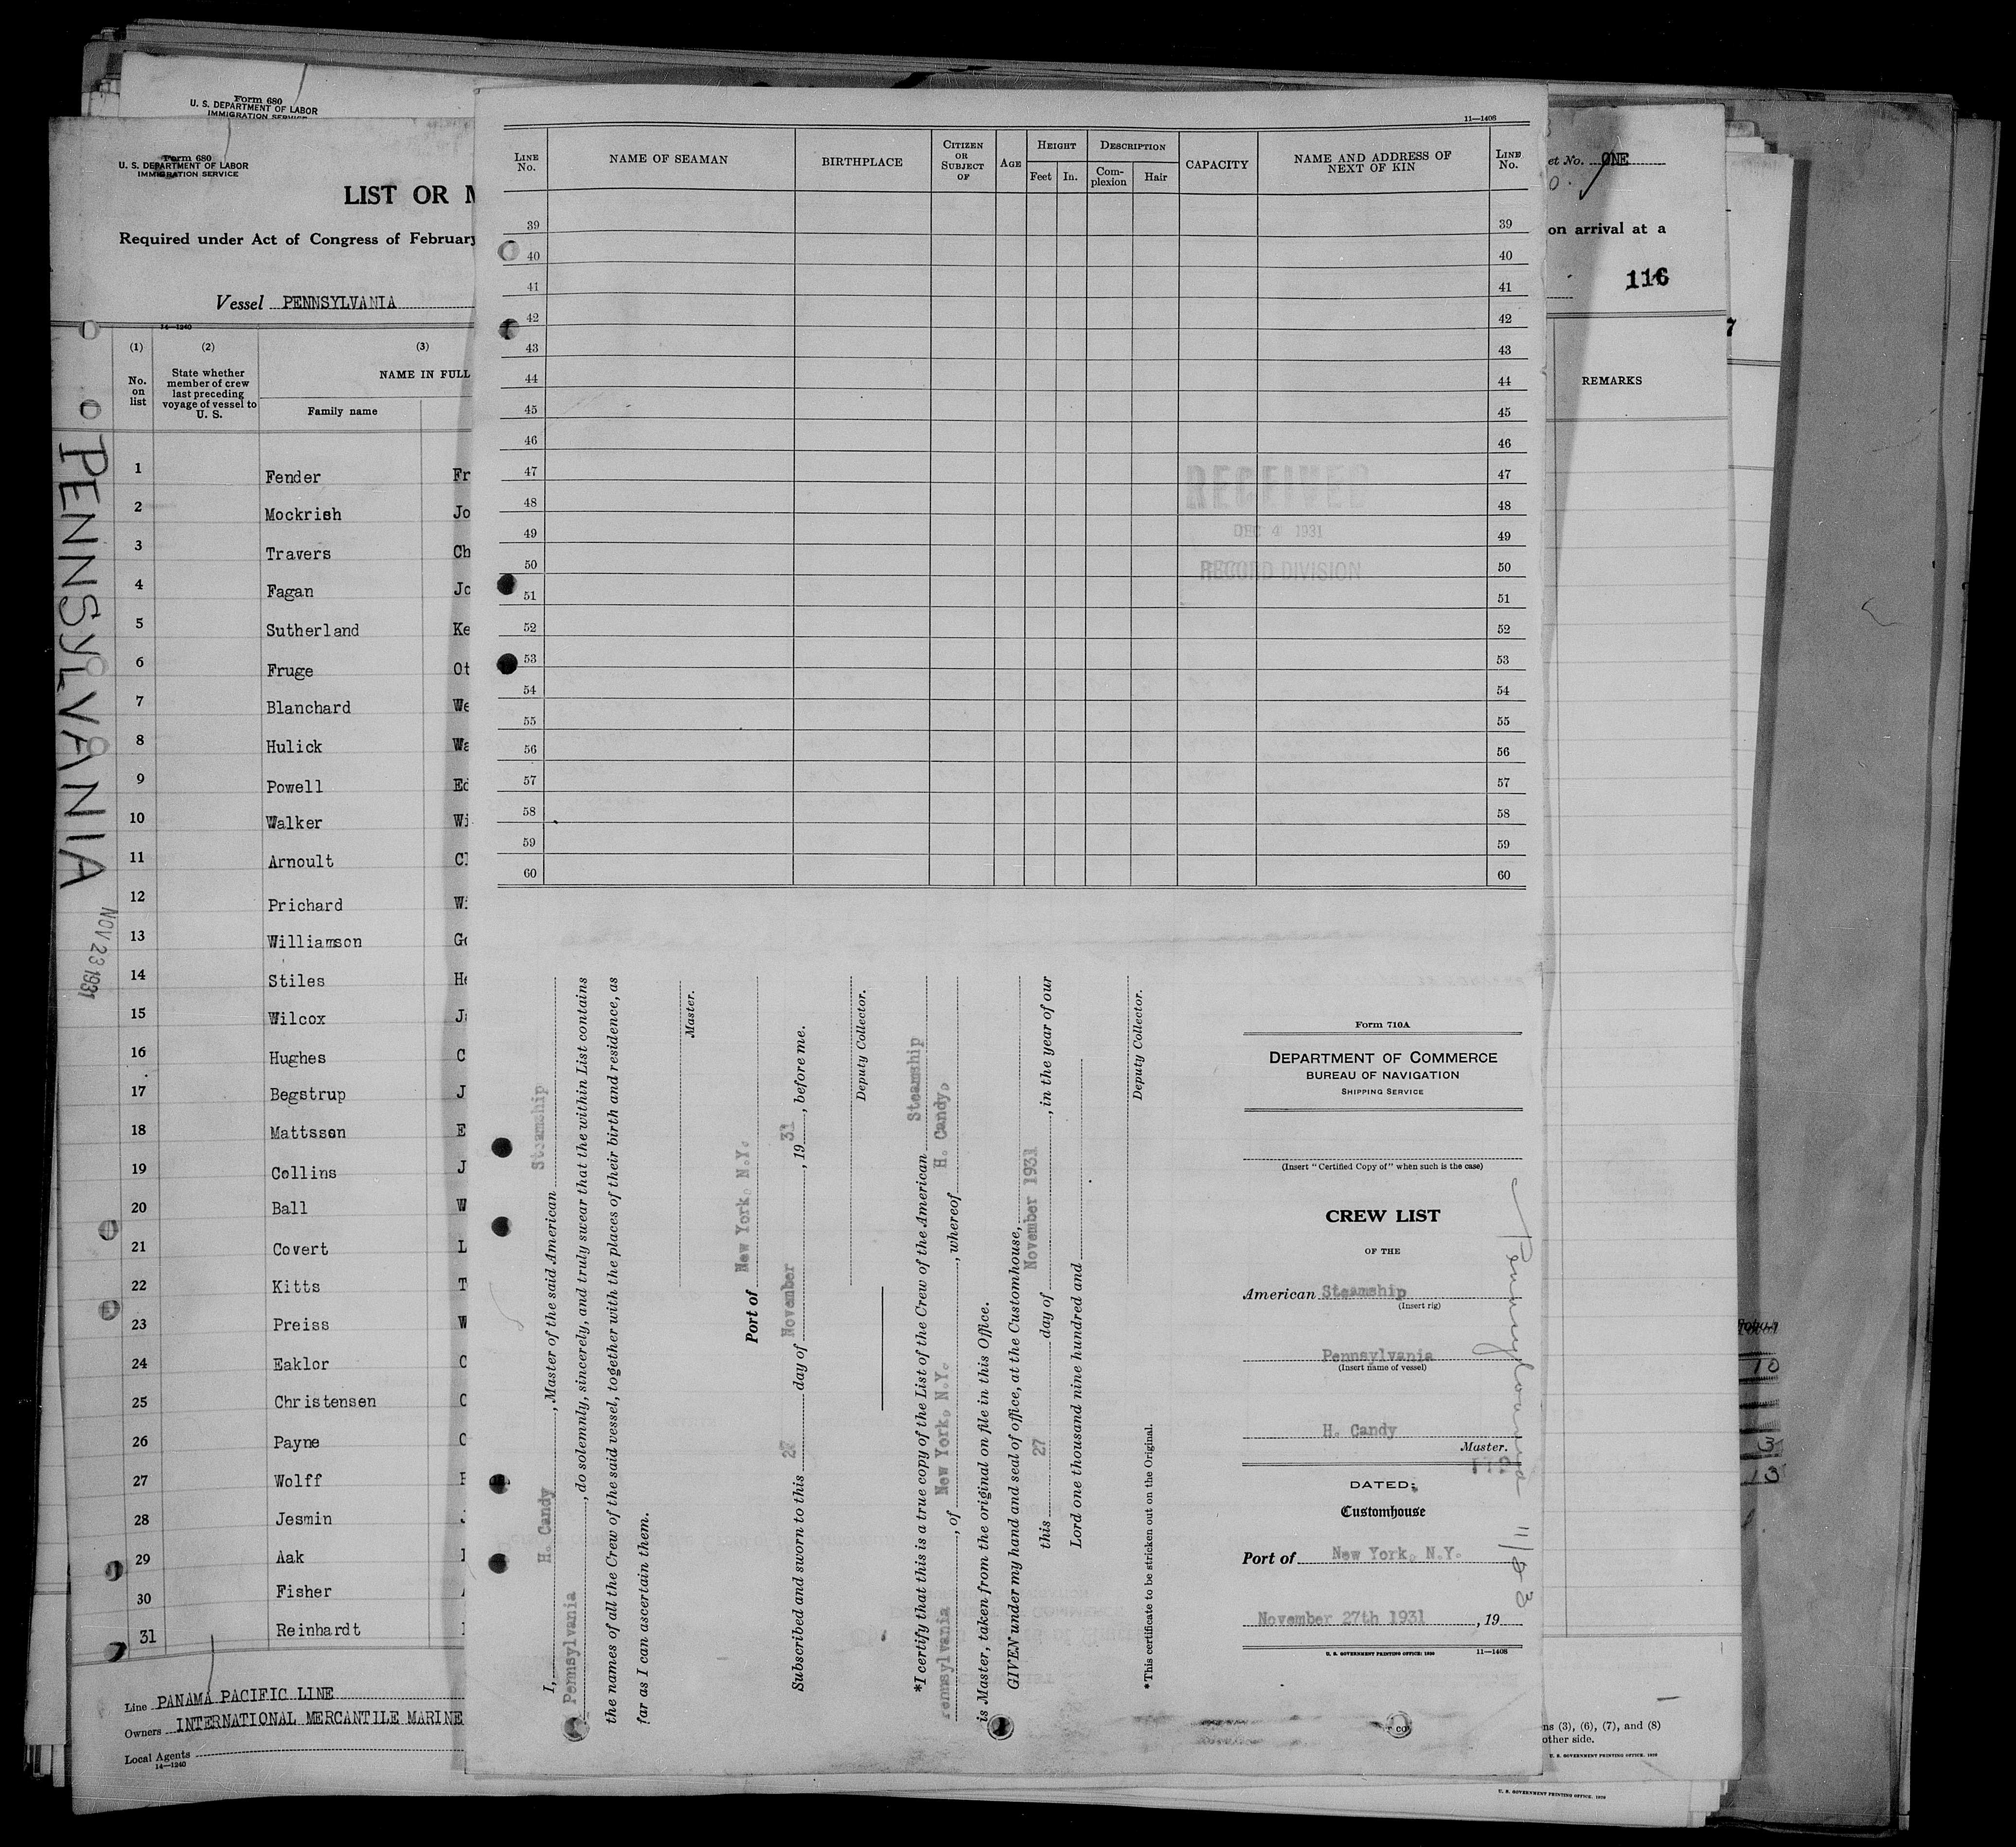 Form 680
U. S. DEPARTMENT OF LABOR
IMMIGRATION SERVICE
Form 680
U. S. DEPARTMENT OF LABOR
IMMIGRATION SERVICE
LIST OR
Required under Act of Congress of February
Vessel PENNSYLVANIA
14—1240
(1) (2) (3)
No. on list
State whether member of crew last preceding voyage of vessel to U. S.
NAME IN FULL
Family name
1 Fender Fr
2 Mockrish Jo
3 Travers Ch
4 Fagan Jo
5 Sutherland Ke
6 Fruge Ot
7 Blanchard We
8 Hulick Wa
9 Powell Ed
10 Walker Wi
11 Arnoult Cl
12 Prichard Wi
13 Williamson Ge
14 Stiles He
15 Wilcox Ja
16 Hughes C
17 Begstrup J
18 Mattsson E
19 Collins J
20 Ball W
21 Covert L
22 Kitts T
23 Preiss W
24 Eaklor C
25 Christensen C
26 Payne C
27 Wolff
28 Jesmin
29 Aak
30 Fisher
31 Reinhardt
Line PANAMA PACIFIC LINE
Owners INTERNATIONAL MERCANTILE MARINE
Local Agents
14—1240
PENNSYLVANIA
NOV 23 1931
11—1408
LINE No.
NAME OF SEAMAN
BIRTHPLACE
CITIZEN OR SUBJECT OF
AGE
HEIGHT
Feet In.
DESCRIPTION
Complexion Hair
CAPACITY
NAME AND ADDRESS OF NEXT OF KIN
LINE No.
39 39
40 40
41 41
42 42
43 43
44 44
45 45
46 46
47 47
48 48
49 49
50 50
51 51
52 52
53 53
54 54
55 55
56 56
57 57
58 58
59 59
60 60
RECEIVED
DEC 4 1931
RECORD DIVISION
I, H. Candy, Master of the said American Steamship
Pennsylvania, do solemnly, sincerely, and truly swear that the within List contains
the names of all the Crew of the said vessel, together with the places of their birth and residence, as
far as I can ascertain them.
Master.
Port of New York, N.Y.
Subscribed and sworn to this 27 day of November, 19 31, before me.
Deputy Collector.
*I certify that this is a true copy of the List of the Crew of the American Steamship
Pennsylvania, of New York, N.Y., whereof H. Candy,
is Master, taken from the original on file in this Office.
GIVEN under my hand and seal of office, at the Customhouse,
this 27 day of November 1931, in the year of our
Lord one thousand nine hundred and
Deputy Collector.
*This certificate to be stricken out on the Original.
Form 710A
DEPARTMENT OF COMMERCE
BUREAU OF NAVIGATION
SHIPPING SERVICE
(Insert "Certified Copy of" when such is the case)
CREW LIST
OF THE
American Steamship
(Insert rig)
Pennsylvania
(Insert name of vessel)
H. Candy
Master.
DATED:
Customhouse
Port of New York, N.Y.
November 27th 1931, 19
U. S. GOVERNMENT PRINTING OFFICE: 1930 11—1408
Pennsylvania 11/23
et No. ONE
on arrival at a
116
REMARKS
7
10
3
13
ns (3), (6), (7), and (8)
other side.
U. S. GOVERNMENT PRINTING OFFICE: 1929
U. S. GOVERNMENT PRINTING OFFICE: 1929